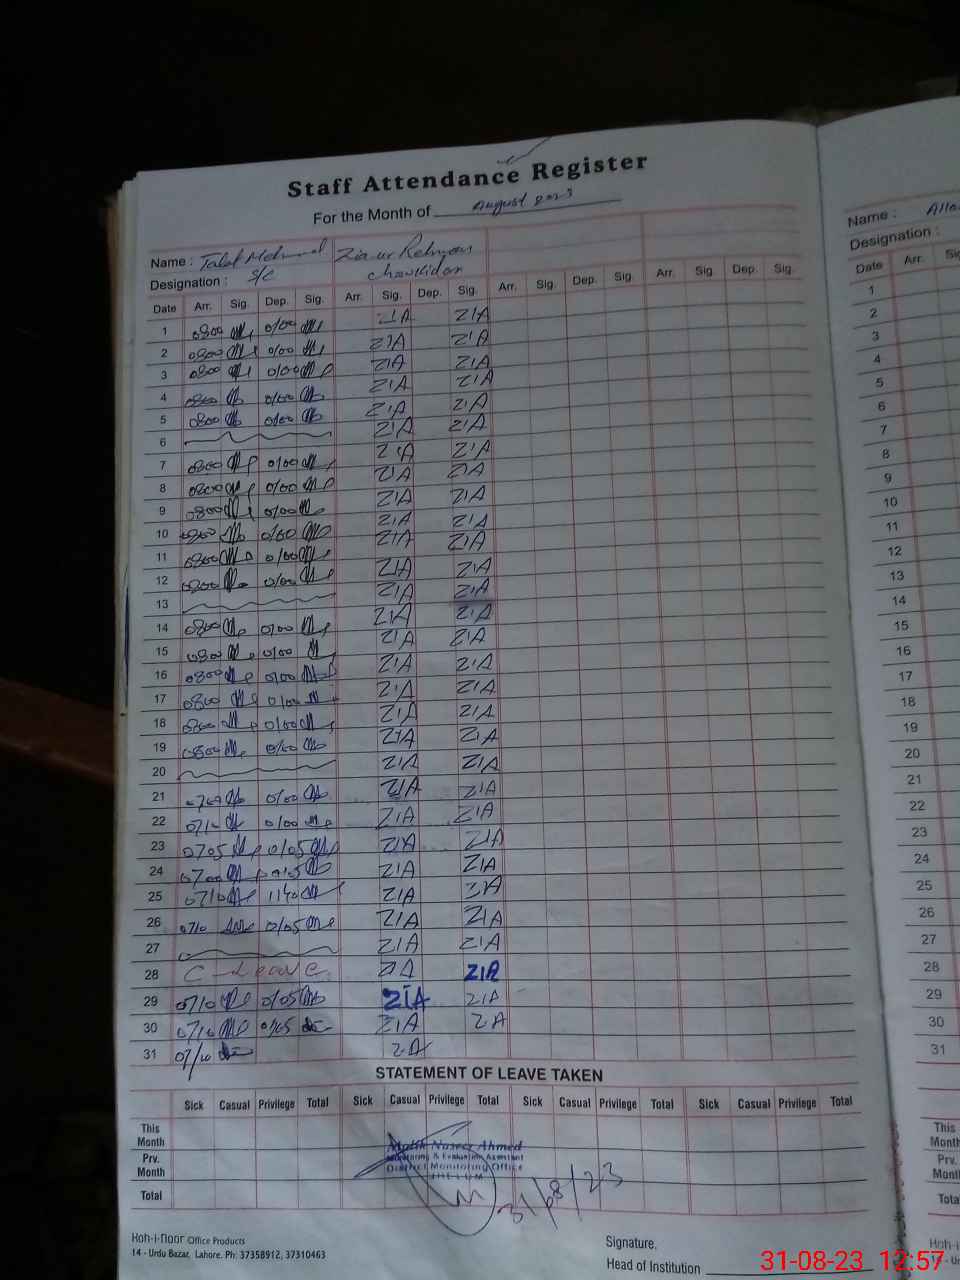 Staff Attendance Register
For the Month of August 2023
Name : Talat Mehmood Zia ur Rehman
Designation : S/C Chowkidar
Date Arr. Sig. Dep. Sig. Arr. Sig. Dep. Sig. Arr. Sig. Dep. Sig. Arr. Sig. Dep. Sig.
1 0800 0100 ZIA ZIA
2 0800 0100 ZIA ZIA
3 0800 0100 ZIA ZIA
4 0800 0100 ZIA ZIA
5 0800 0100 ZIA ZIA
6 ZIA ZIA
7 0800 0100 ZIA ZIA
8 0800 0100 ZIA ZIA
9 0800 0100 ZIA ZIA
10 0800 0100 ZIA ZIA
11 0800 0100 ZIA ZIA
12 0800 0100 ZIA ZIA
13 ZIA ZIA
14 0800 0100 ZIA ZIA
15 0800 0100 ZIA ZIA
16 0800 0100 ZIA ZIA
17 0800 0100 ZIA ZIA
18 0800 0100 ZIA ZIA
19 0800 0100 ZIA ZIA
20 ZIA ZIA
21 0100 ZIA ZIA
22 0710 0100 ZIA ZIA
23 0705 0105 ZIA ZIA
24 0700 ZIA ZIA
25 0710 1140 ZIA ZIA
26 0710 0105 ZIA ZIA
27 ZIA ZIA
28 C-Leave ZIA ZIA
29 0710 0105 ZIA ZIA
30 0710 0105 ZIA ZIA
31 0710 ZIA
STATEMENT OF LEAVE TAKEN
Sick Casual Privilege Total Sick Casual Privilege Total Sick Casual Privilege Total Sick Casual Privilege Total
This Month
Prv. Month
Total
Malik Naseer Ahmed
Monitoring & Evaluation Assistant
District Monitoring Office
JHELUM
31/08/23
Koh-i-noor Office Products
14 - Urdu Bazar, Lahore. Ph: 37358912, 37310463
Signature.
Head of Institution
Name :
Designation :
Date Arr.
1
2
3
4
5
6
7
8
9
10
11
12
13
14
15
16
17
18
19
20
21
22
23
24
25
26
27
28
29
30
31
This Month
Prv. Month
Total
31-08-23 12:57